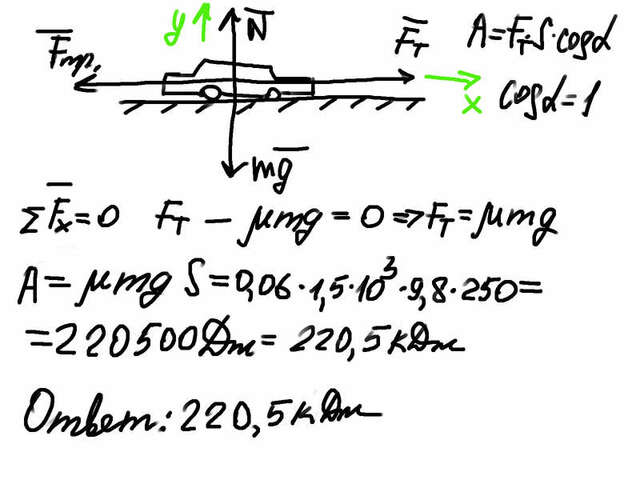 y N
Fтр. Fт A=Fт·S·cosα
x cosα=1
mg
ΣFx=0 Fт − μmg=0 ⇒ Fт=μmg
A=μmg S=0,06·1,5·10³·9,8·250=
=220500Дж=220,5кДж
Ответ: 220,5кДж